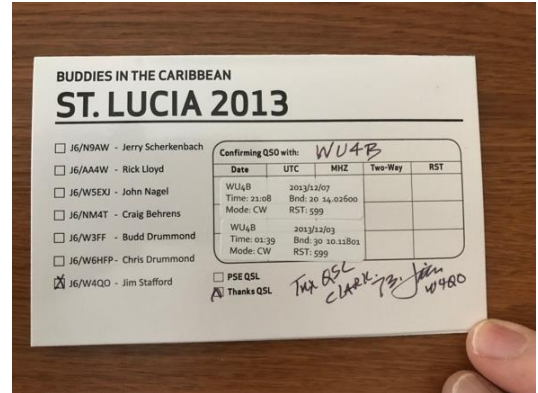 BUDDIES IN THE CARIBBEAN
ST. LUCIA 2013
J6/N9AW - Jerry Scherkenbach
J6/AA4W - Rick Lloyd
J6/W5EXJ - John Nagel
J6/NM4T - Craig Behrens
J6/W3FF - Budd Drummond
J6/W6HFP - Chris Drummond
J6/W4QO - Jim Stafford
Confirming QSO with: WU4B
Date UTC MHZ Two-Way RST
WU4B 2013/12/07
Time: 21:08 Bnd: 20 14.02600
Mode: CW RST: 599
WU4B 2013/12/03
Time: 01:39 Bnd: 30 10.11801
Mode: CW RST: 599
PSE QSL
Thanks QSL
Tnx QSL
CLARK. 73. Jim
W4QO